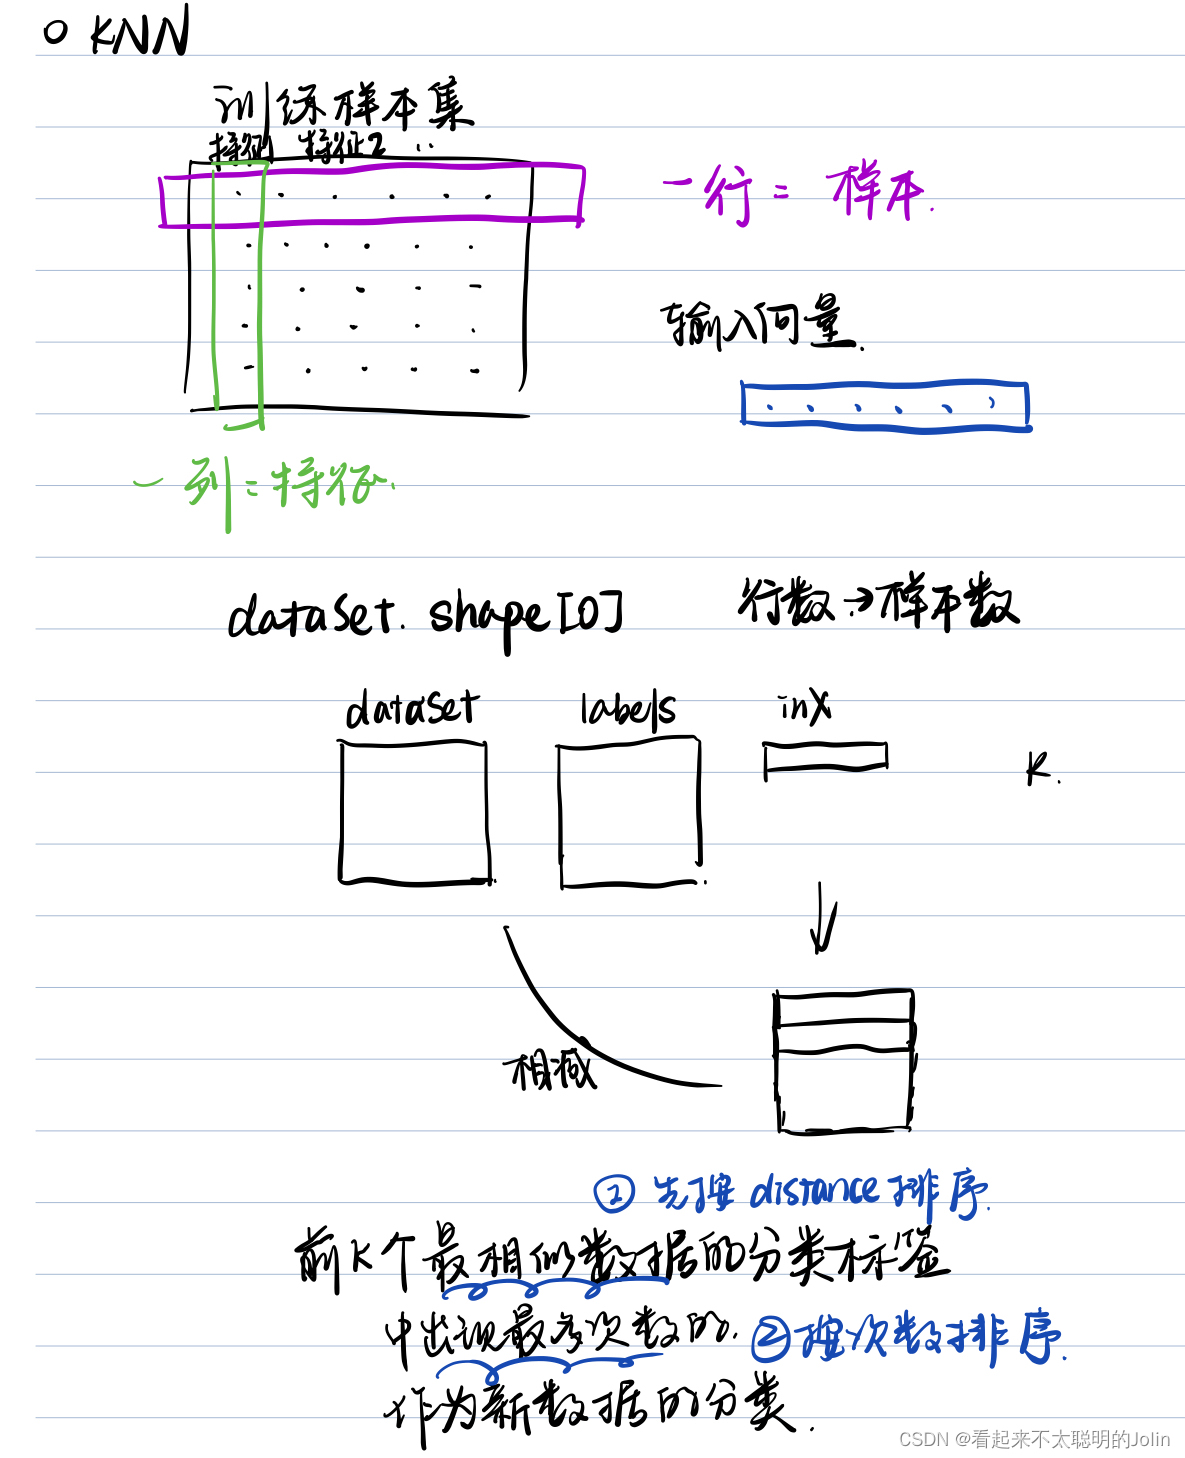 KNN
训练样本集
特征1 特征2 ..
一行 = 样本.
输入向量.
一列 = 特征.
dataSet. shape[0] 行数 → 样本数
dataSet labels inX
K.
相减
① 先按 distance 排序.
前K个最相似数据的分类标签
中出现最多次数的. ②按次数排序.
作为新数据的分类.
CSDN @看起来不太聪明的Jolin